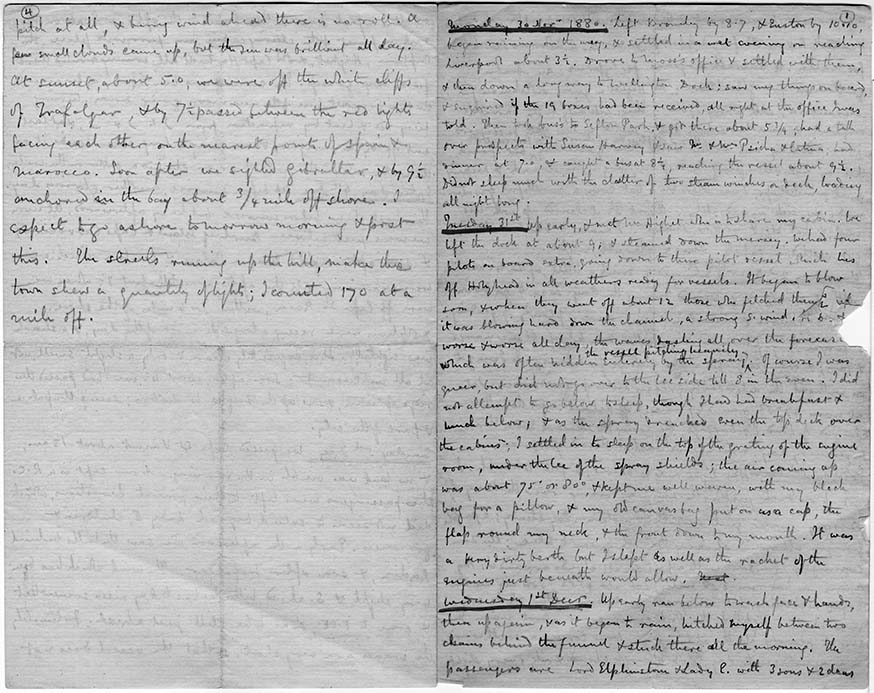 4
pitch at all, & being wind ahead there is no roll. A
few small clouds came up, but the sun was brilliant all day.
At sunset, about 5.0, we were off the white cliffs
of Trafalgar, & by 7½ passed between the red lights
facing each other on the nearest points of Spain &
Marocco. Soon after we sighted Gibraltar, & by 9½
anchored in the bay about ¾ mile off shore. I
expect to go ashore tomorrow morning & post
this. The streets running up the hill, make the
town shew a quantity of lights; I counted 170 at a
mile off.
1
Monday 30 Nov 1880. Left Bromley by 8.7, & Euston by 10.10,
began raining on the way, & settled in a wet evening on reaching
Liverpool about 3½. Drove to Moss's office & settled with them,
& then down a long way to Wellington Dock; saw my things on board,
& enquired if the 19 boxes had been received, all right at the office I was
told. Then took buss to Sefton Park, & got there about 5¾, had a talk
over prospects with Susan Harvey & Mr
dinner at 7.0 & caught a bus at 8½, reaching the vessel about 9½.
Did not sleep much with the clatter of two steam winches on deck, loading
all night long.
Tuesday 31st Up early, & met Mr who is to share my cabin. We
left the dock at about 9, & steamed down the Mersey. We had four
pilots on board extra, going down to their pilot vessel which lies
off Holyhead in all weathers ready for vessels. It began to blow
soon, & when they went off about 12 those who fetched them
it was blowing hard down the channel, a strong S. wind.
worse & worse all day, the waves dashing all over the forecastle
which was often hidden entirely by the spray, the vessel pitching heavily. Of course I was
queer, but did not go over to the lee side till 8 in the even. I did
not attempt to go below to sleep, though I had had breakfast &
lunch below; & as the spray drenched even the top deck over
the cabins, I settled in to sleep on the top of the grating of the engine
room, under the lee of the spray shields; the air coming up
was about 75° or 80°, & kept me well warm, with my black
bag for a pillow, & my old canvas bag put on as a cap, the
flap round my neck, & the front down to my mouth. It was
a very dirty berth but I slept as well as the racket of the
engines just beneath would allow.
Wednesday 1st Decr. Up early ran below to wash face & hands,
then up again, & as it began to rain, hitched myself between two
chains behind the funnel & stuck there all the morning. The
passengers are Lord Elphinston & Lady E. with 3 sons & 2 daus